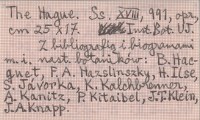 The Hague. Ss. XVIII, 991, opr.
cm 25 X 17. Inst. Bot. UJ.
Z bibliografią i biogramami
m.i. nast. botaników: B. Hac-
quet, F. A. Hazslinszky, H. Ilse,
S. Jávorka, K. Kalchbrenner,
A. Kanitz, P. Kitaibel, J. T. Klein,
J. A. Knapp.